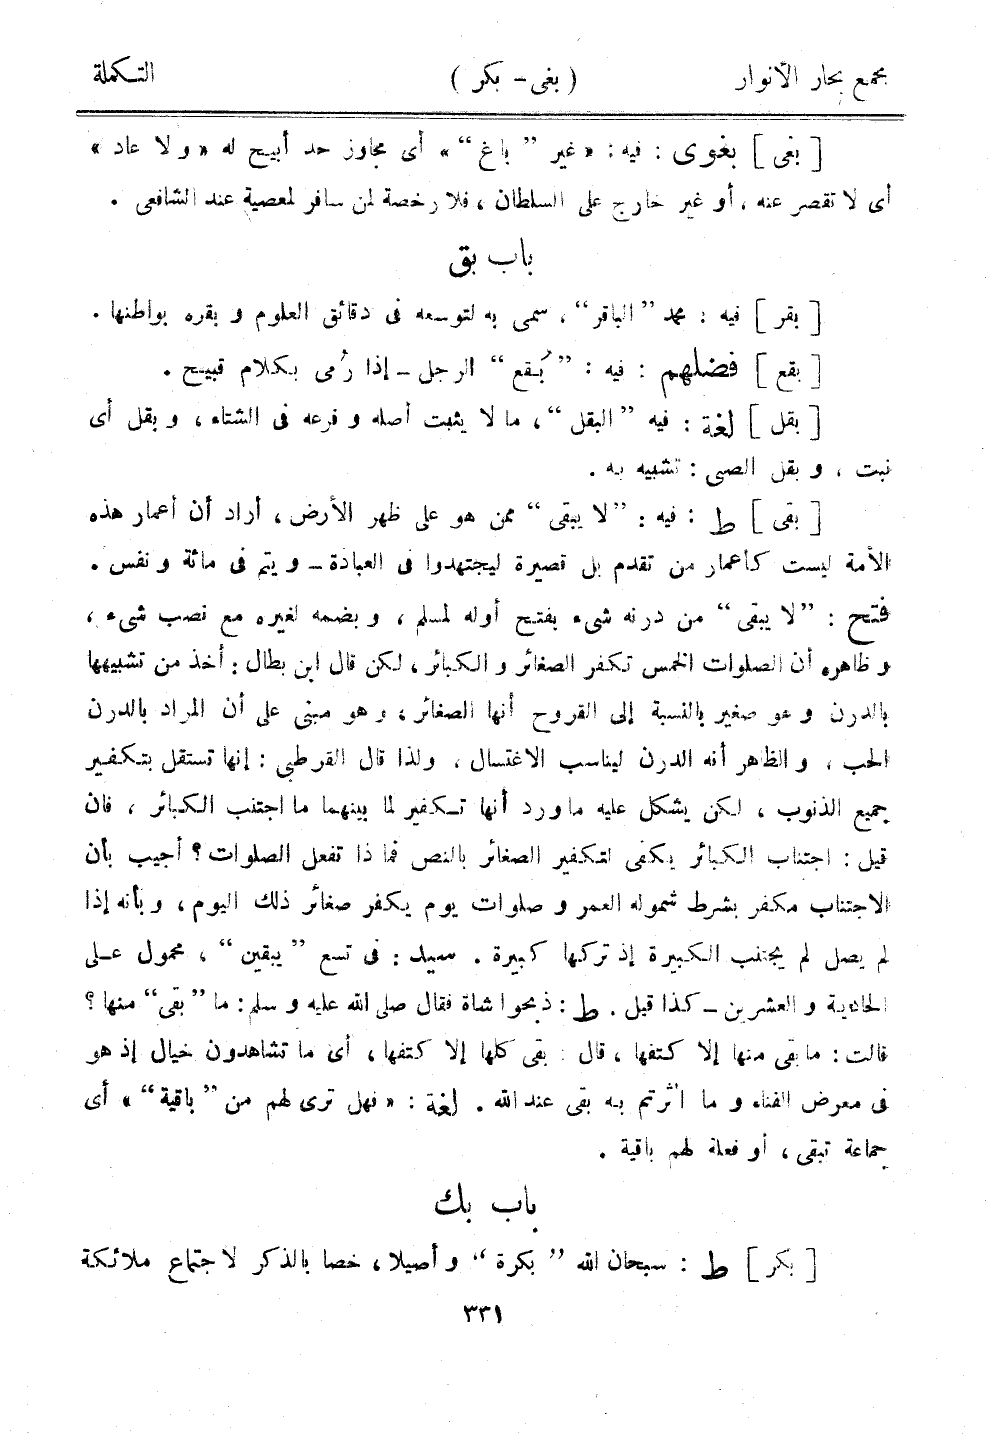 مجمع بحار الأنوار ( بغى - بكر ) التكملة
[ بغى ] بغوى : فيه : « غير ” باغ “ » أى مجاوز حد أبيح له « و لا عاد »
أى لا تقصر عنه ، أو غير خارج على السلطان ، فلا رخصة لمن سافر لمعصية عند الشافعى .
باب بق
[ بقر ] فيه : محمد ” الباقر “ ، سمى به لتوسعه فى دقائق العلوم و بقره بواطنها .
[ بقع ] فضلهم : فيه : ” بُقع “ الرجل - إذا رُمى بكلام قبيح .
[ بقل ] لغة : فيه ” البقل “ ، ما لا يثبت أصله و فرعه فى الشتاء ، و بقل أى
نبت ، و بقل الصبى : تشبيه به .
[ بقى ] ط : فيه : ” لا يبقى “ ممن هو على ظهر الأرض ، أراد أن أعمار هذه
الأمة ليست كأعمار من تقدم بل قصيرة ليجتهدوا فى العبادة - و يتم فى مائة و نفس .
فتح : ” لا يبقى “ من درنه شىء بفتح أوله لمسلم ، و بضمه لغيره مع نصب شىء ،
و ظاهره أن الصلوات الخمس تكفر الصغائر و الكبائر ، لكن قال ابن بطال : أخذ من تشبيهها
بالدرن و هو صغير بالنسبة إلى القروح أنها الصغائر ، و هو مبنى على أن المراد بالدرن
الحب ، و الظاهر أنه الدرن ليناسب الاغتسال ، ولذا قال القرطبى : إنها تستقل بتكفير
جميع الذنوب ، لكن يشكل عليه ما ورد أنها تكفير لما بينهما ما اجتنب الكبائر ، فان
قيل : اجتناب الكبائر يكفى لتكفير الصغائر بالنص فما ذا تفعل الصلوات ؟ أجيب بأن
الاجتناب مكفر بشرط شموله العمر و صلوات يوم يكفر صغائر ذلك اليوم ، و بأنه إذا
لم يصل لم يجتنب الكبيرة إذ تركها كبيرة . سيد : فى تسع ” يبقين “ ، محمول على
الحادية و العشرين - كذا قيل . ط : ذبحوا شاة فقال صلى الله عليه و سلم : ما ” بقى “ منها ؟
قالت : ما بقى منها إلا كتفها ، قال : بقى كلها إلا كتفها ، أى ما تشاهدون خيال إذ هو
فى معرض الفناء و ما أثرتم به بقى عند الله . لغة : « فهل ترى لهم من ” باقية “ » أى
جماعة تبقى ، أو فعلة لهم باقية .
باب بك
[ بكر ] ط : سبحان الله ” بكرة “ و أصيلا ، خصا بالذكر لاجتماع ملائكة
٣٣١